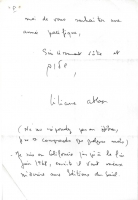 moi de vous souhaiter une
année pacifique,
Sincèrement vôtre et
Liliane Atlan
(Ne me répondez pas en
que je comprends que quelques mots)
Je suis en Californie jusqu'à la fin
juin 1968, ensuite il vaut mieux
m'écrire aux Editions du Seuil.